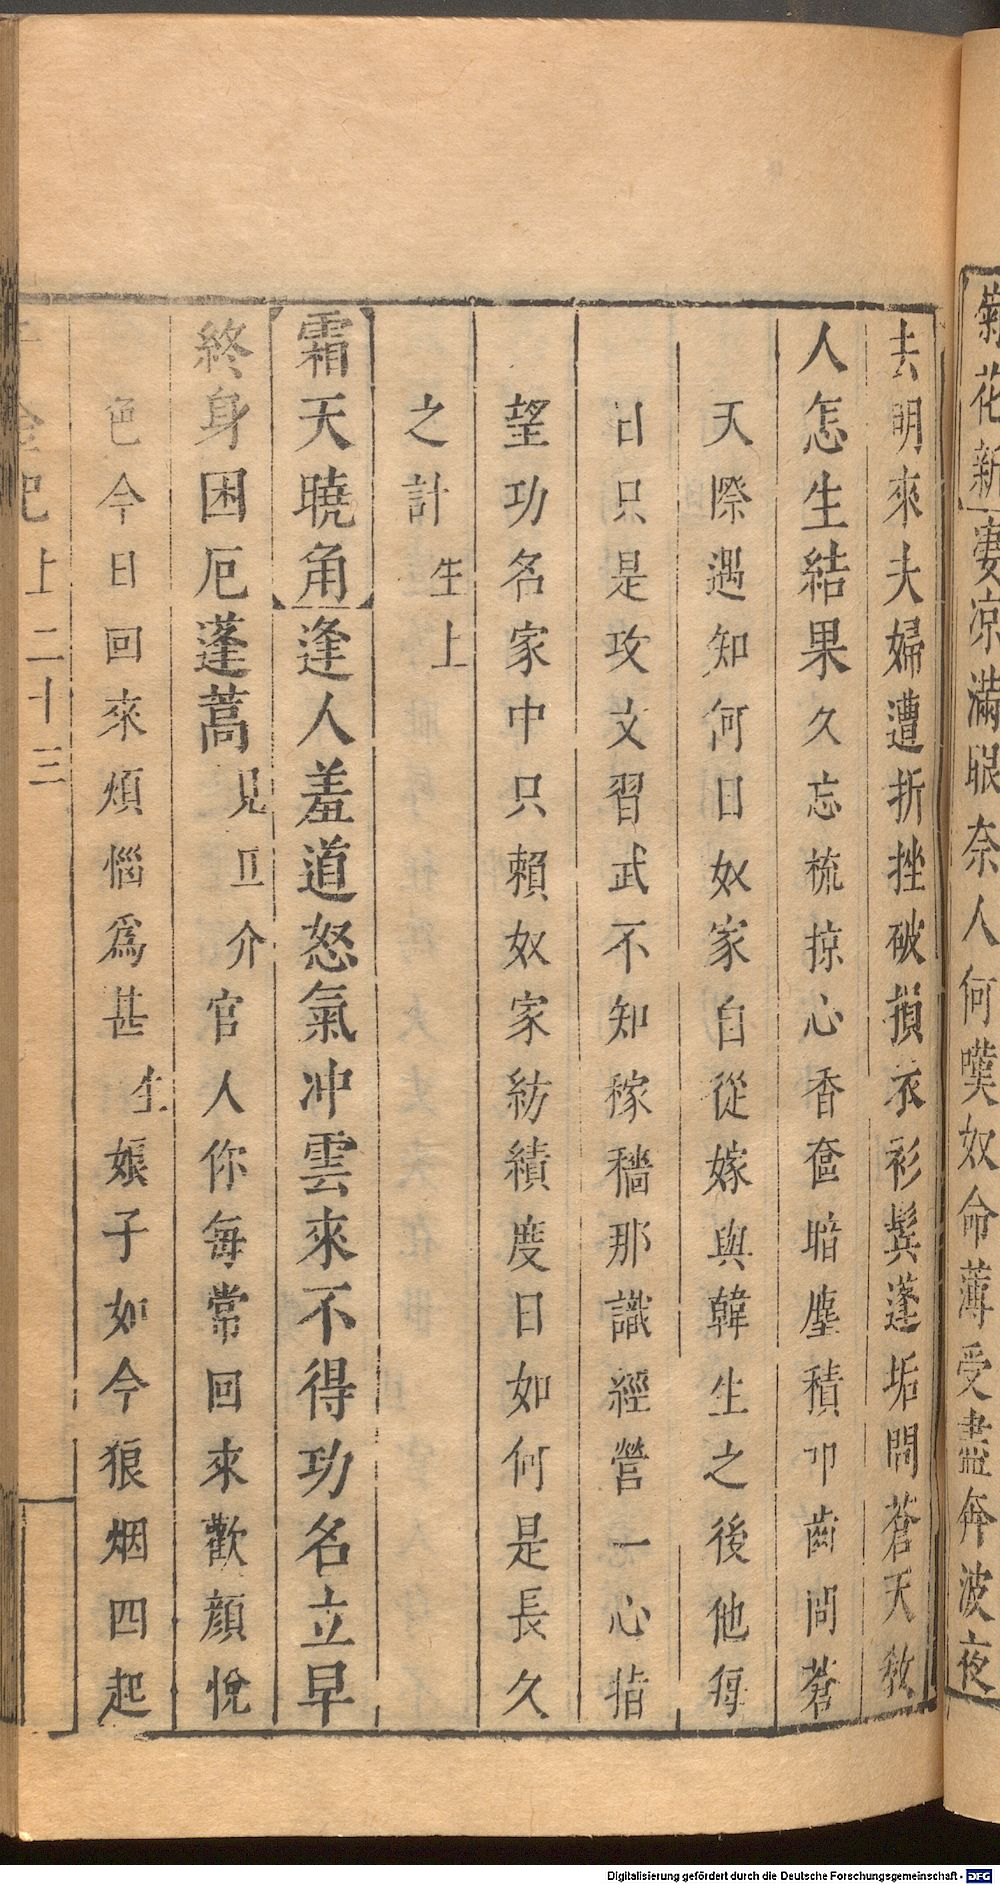 菊花新 凄凉滿眼奈人何嘆奴命薄受盡奔波夜
去明來夫婦遭折挫破損衣衫鬂蓬垢問蒼天教
人怎生結果久忘梳掠心香奩暗塵積叩齒問蒼
天際遇知何日奴家自從嫁與韓生之後他每
日只是攻文習武不知稼穡那識經營一心指
望功名家中只賴奴家紡績度日如何是長久
之計 生上
霜天曉角 逢人羞道怒氣冲雲來不得功名立早
終身困厄蓬蒿 見 介 官人你每常回來歡顔悅
色今日回來煩惱爲甚 生 娘子如今狼烟四起
千金記 上 二十三
Digitalisierung gefördert durch die Deutsche Forschungsgemeinschaft - DFG